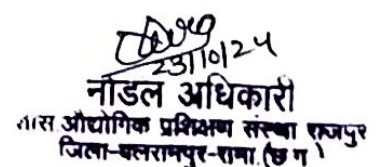 23/10/24
नोडल अधिकारी
शास. औद्योगिक प्रशिक्षण संस्था राजपुर
जिला-बलरामपुर-रामा. (छ ग )